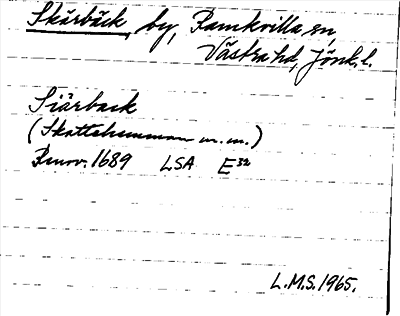 Skärbäck, by, Ramkvilla sn,
Västra hd, Jönk. l.
Siärback
(Skattehemman m.m.)
Renov. 1689 LSA E³²
L.M.S. 1965.